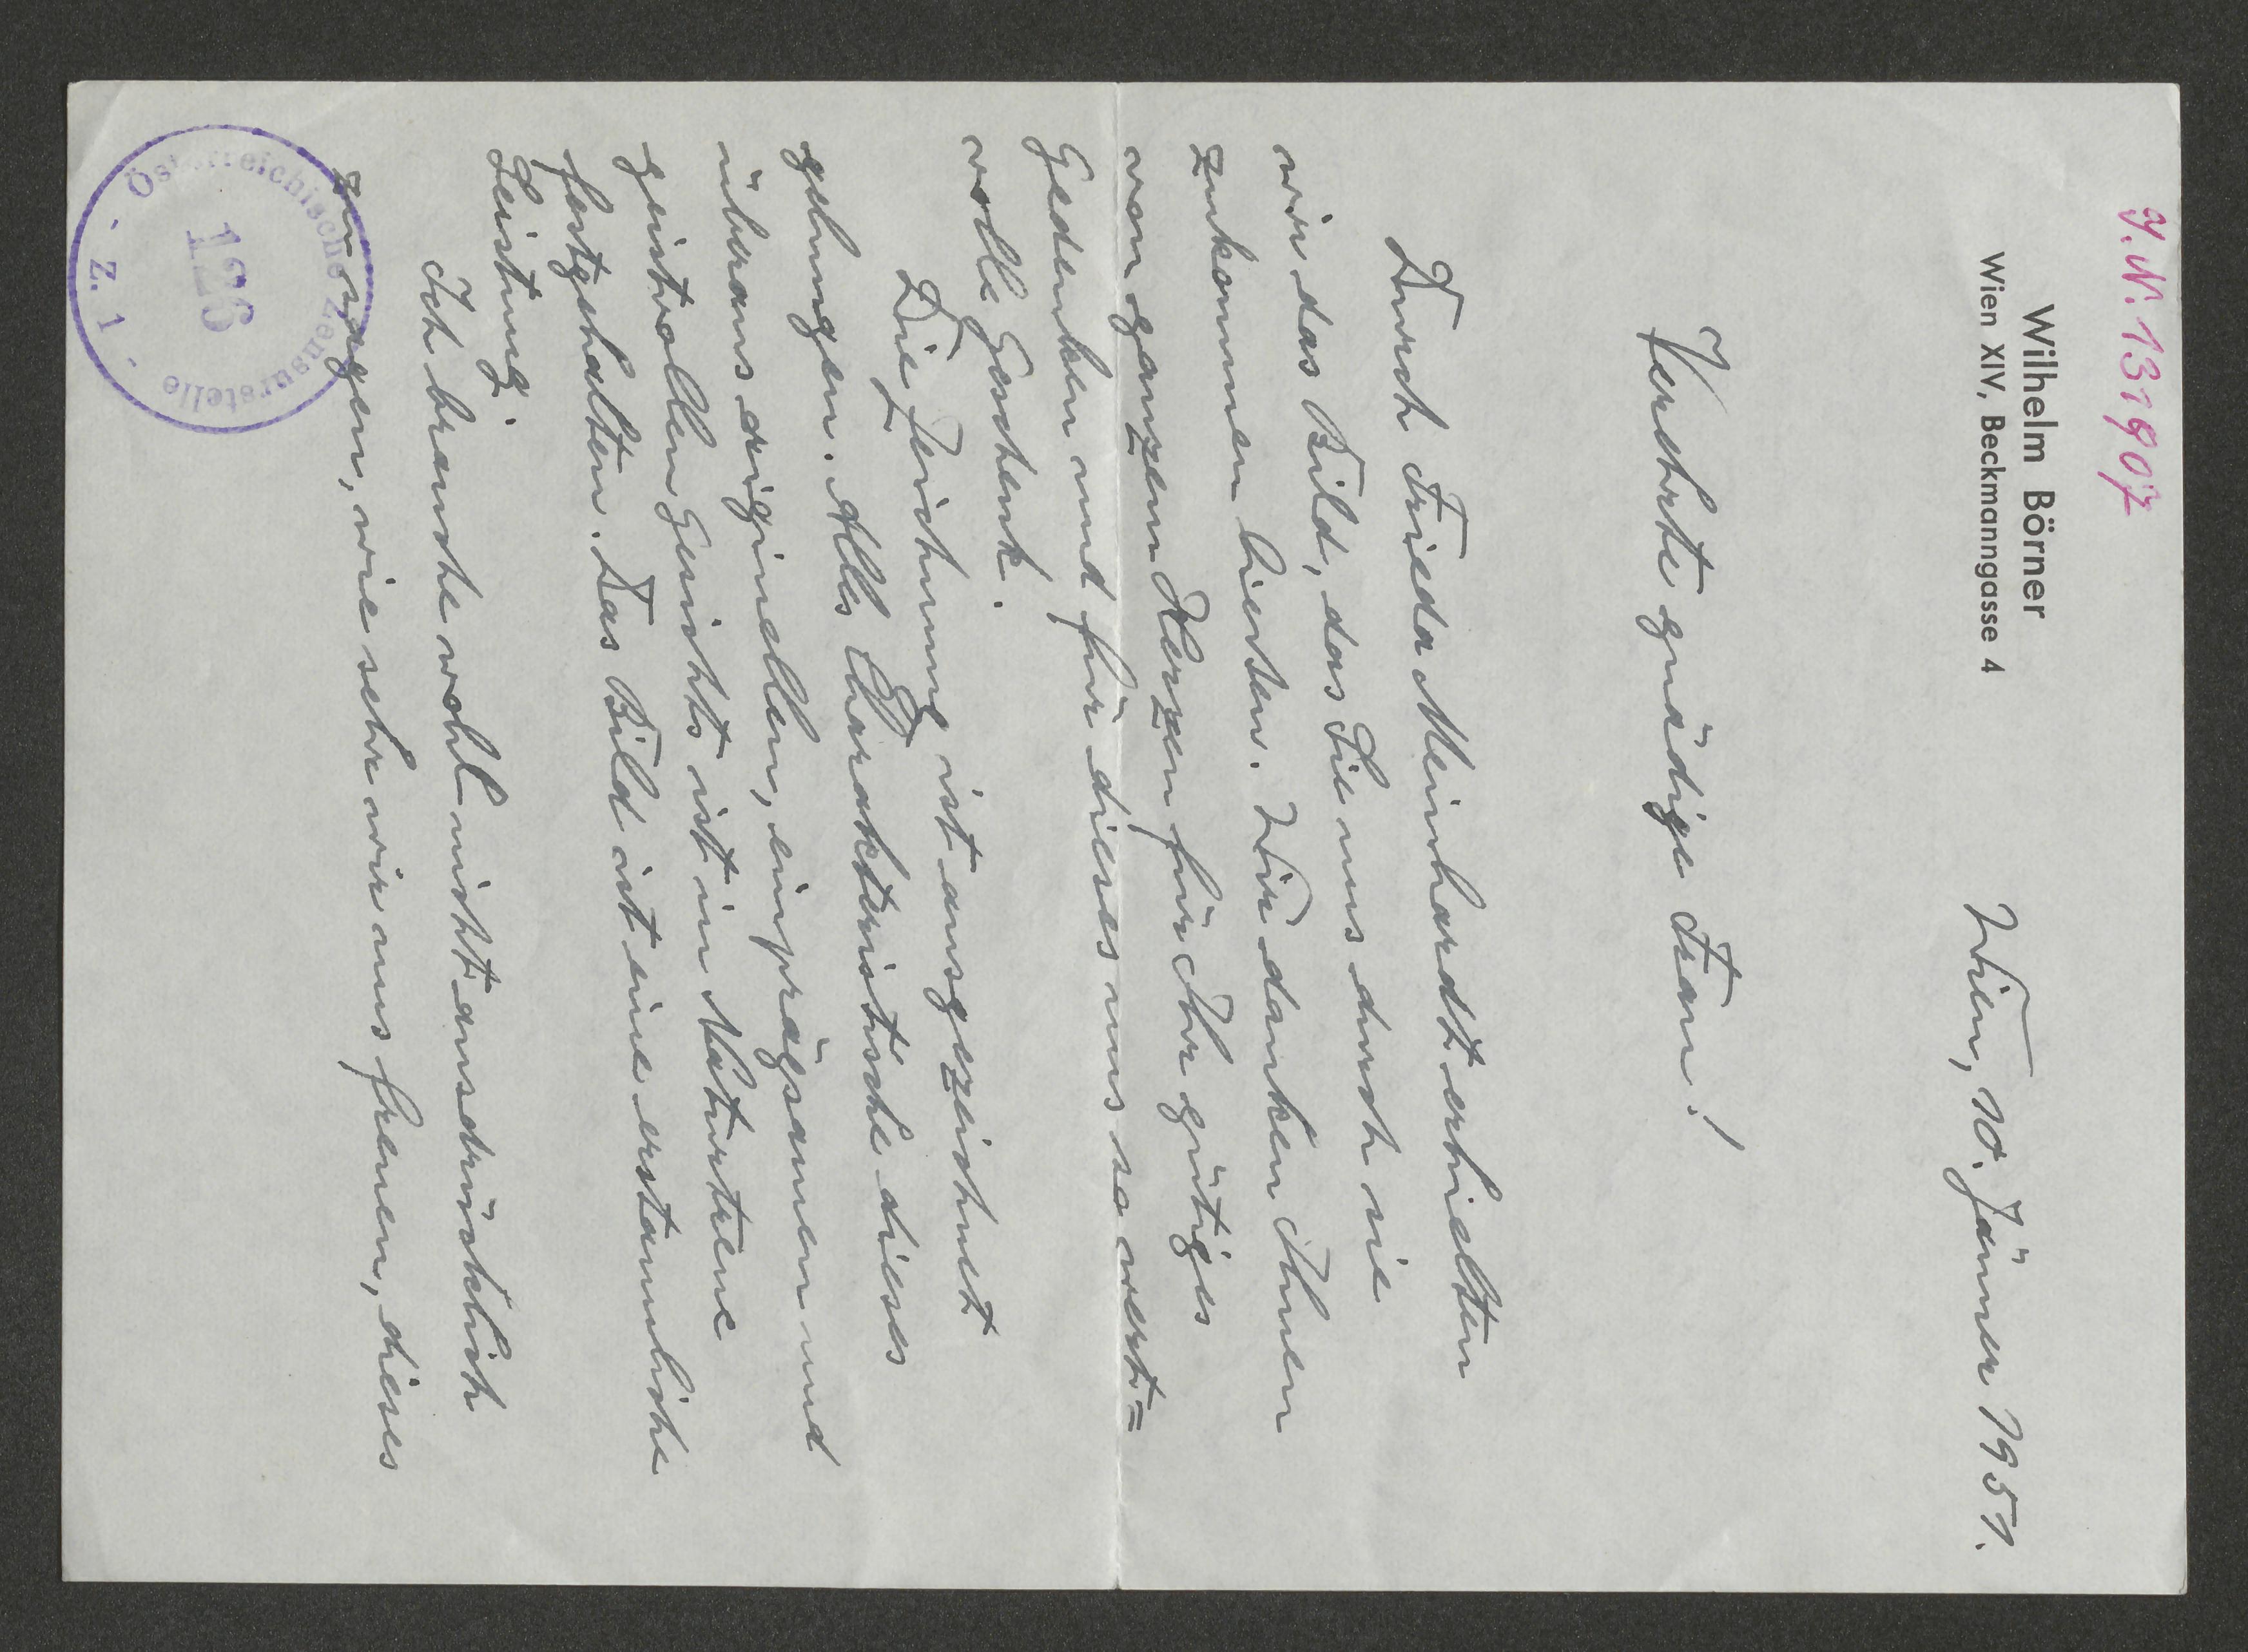 J. N. 131907
Wilhelm Börner
Wien XIV, Beckmanngasse 4
Wien, 10. Jänner 1951.
Verehrte gnädige Frau!
Durch Frieda Meinhardt erhielten
wir das Bild, das Sie uns durch sie
zukommen liessen. Wir danken Ihnen
von ganzem Herzen für Ihr gütiges
Gedenken und für dieses uns so wert=
volle Geschenk.
Die Zeichnung ist ausgezeichnet
gelungen. Alles Charakteristische dieses
überaus originellen, einprägsamen und
geistvollen Gesichts ist in Naturtreue
festgehalten. Das Bild ist eine erstaunliche
Leistung.
Ich brauche wohl nicht ausdrücklich
zu sagen, wie sehr wir uns freuen, dieses
Österreichische Zensurstelle
126
· Z. 1 ·